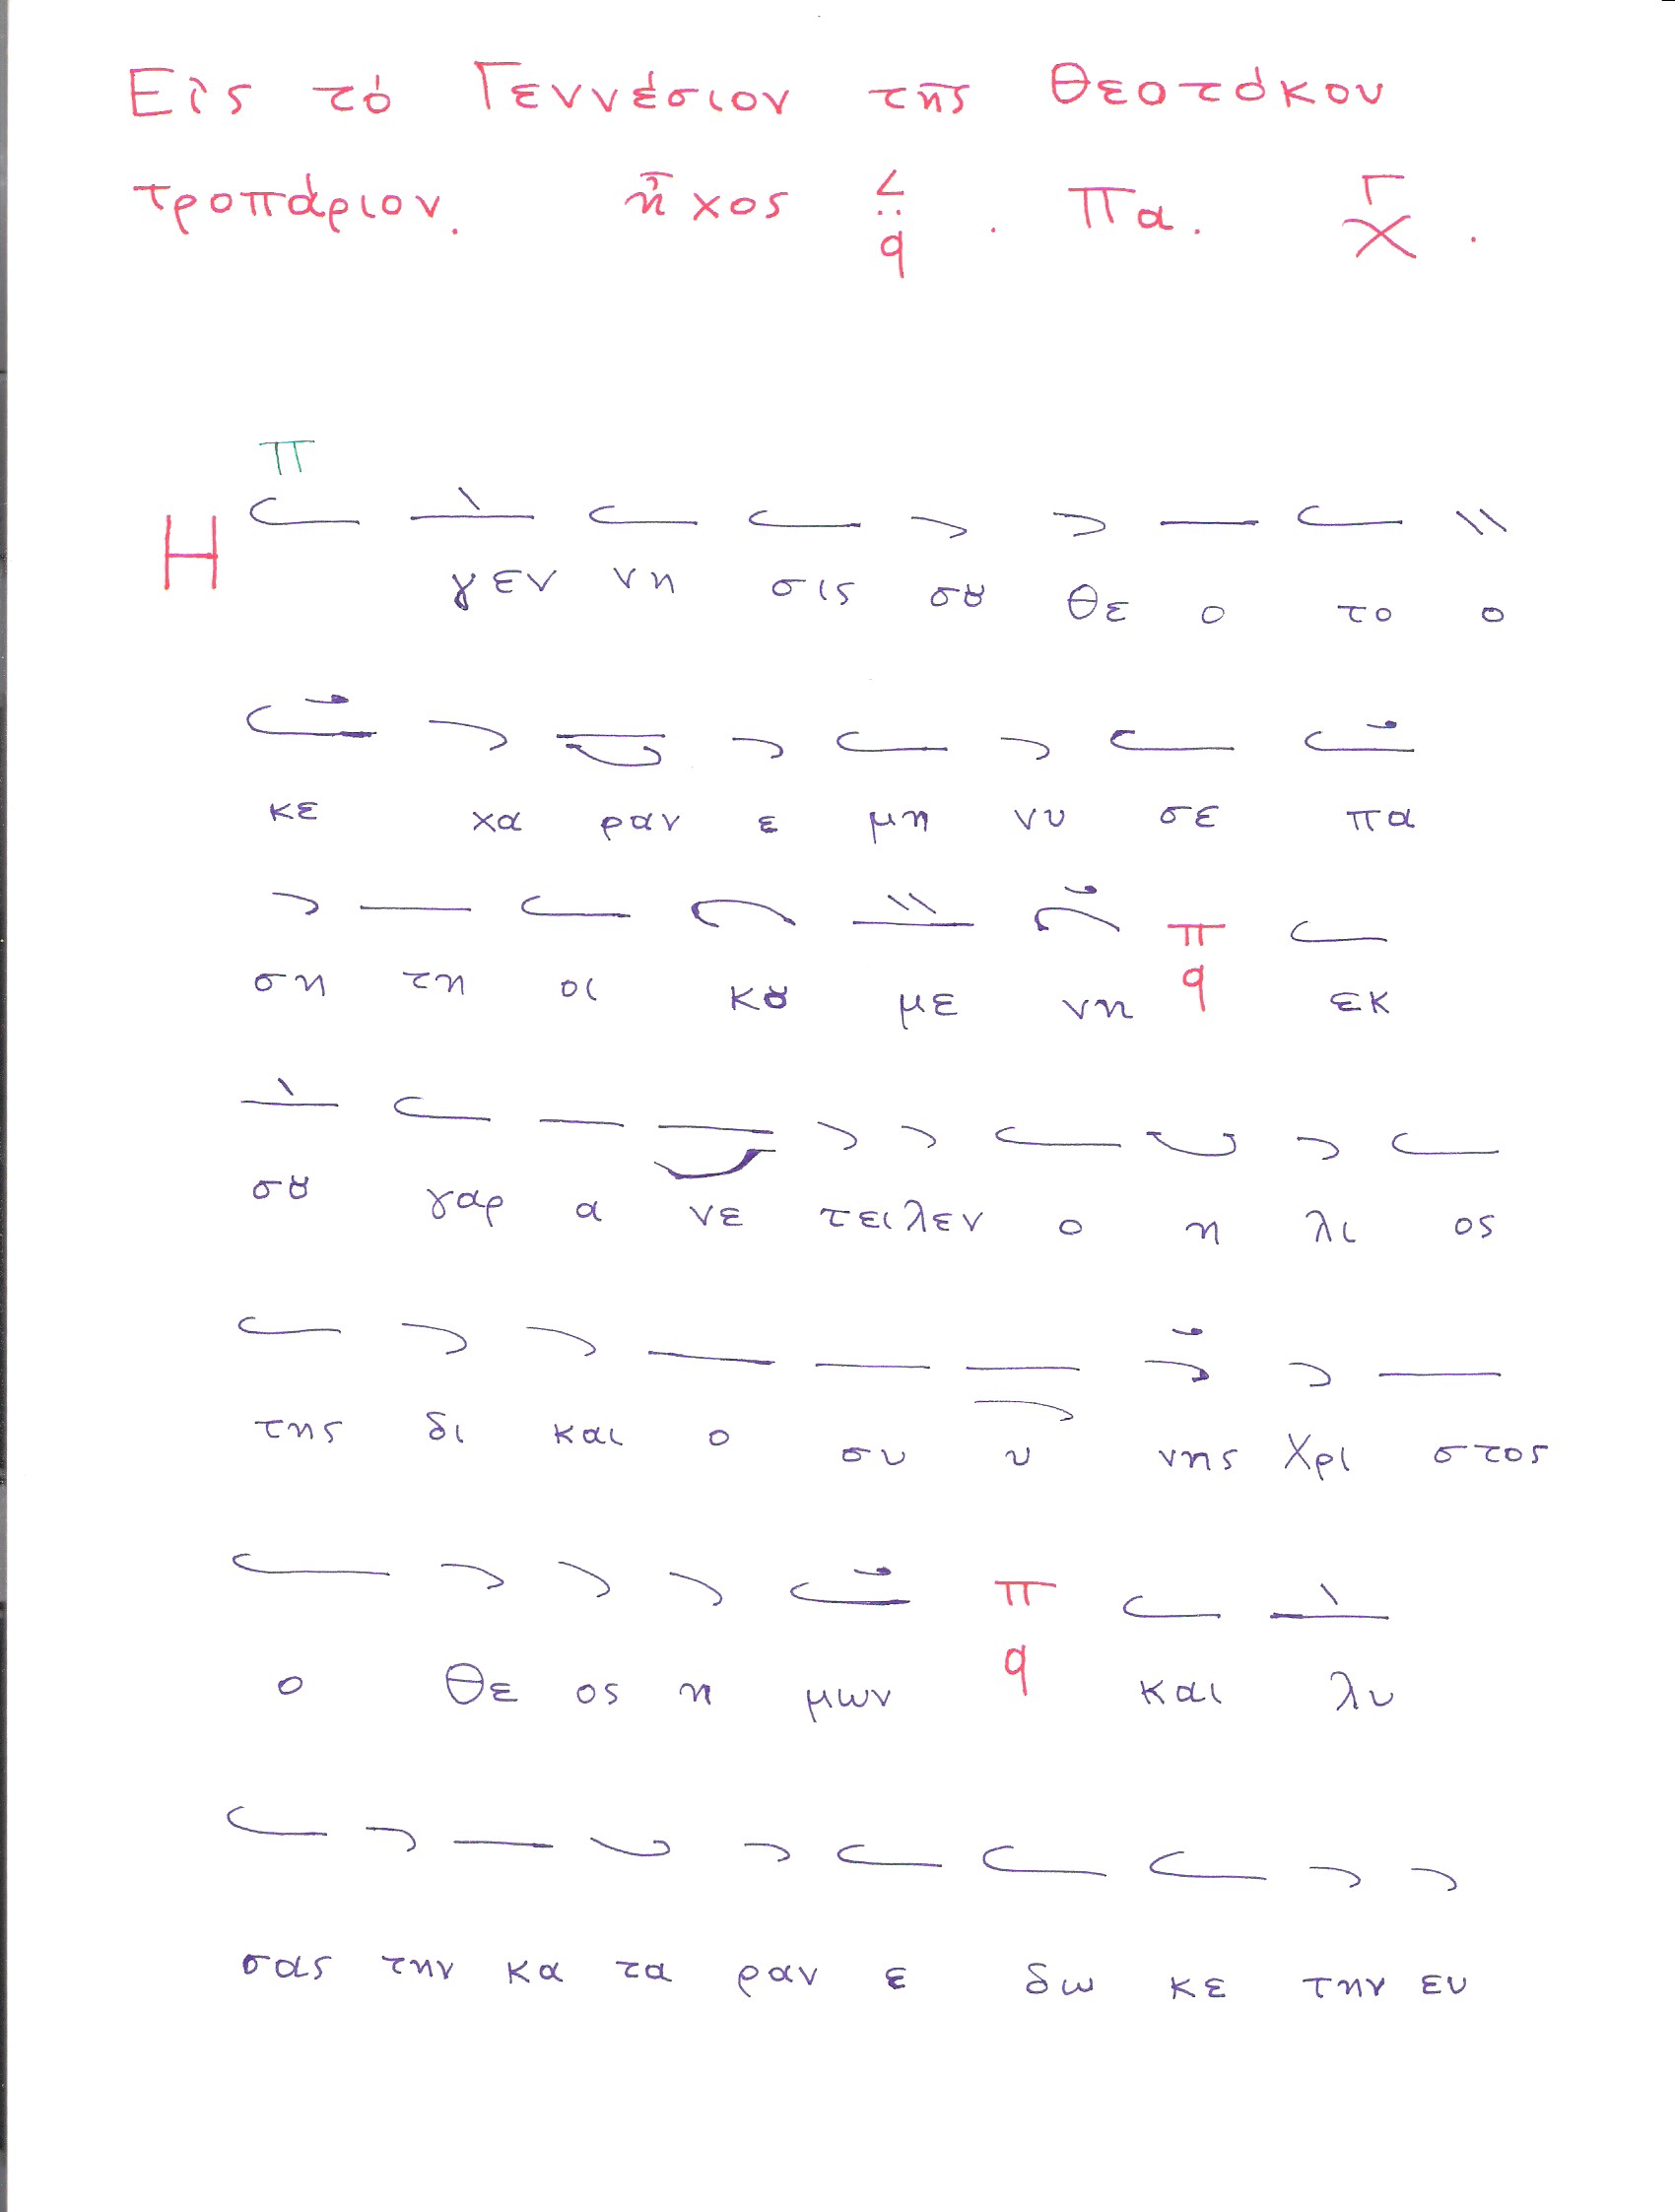 Εἰς τό Γεννέσιον τῆς Θεοτόκου
τροπάριον. ἦχος q . Πα. Γ χ .
π
Η γεν νη σις σȣ θε ο το ο
κε χα ραν ε μη νυ σε πα
ση τη οι κȣ με νη π q εκ
σȣ γαρ α νε τειλεν ο η λι ος
της δι και ο συ υ νης Χρι στος
ο Θε ος η μων π q και λυ
σας την κα τα ραν ε δω κε την ευ